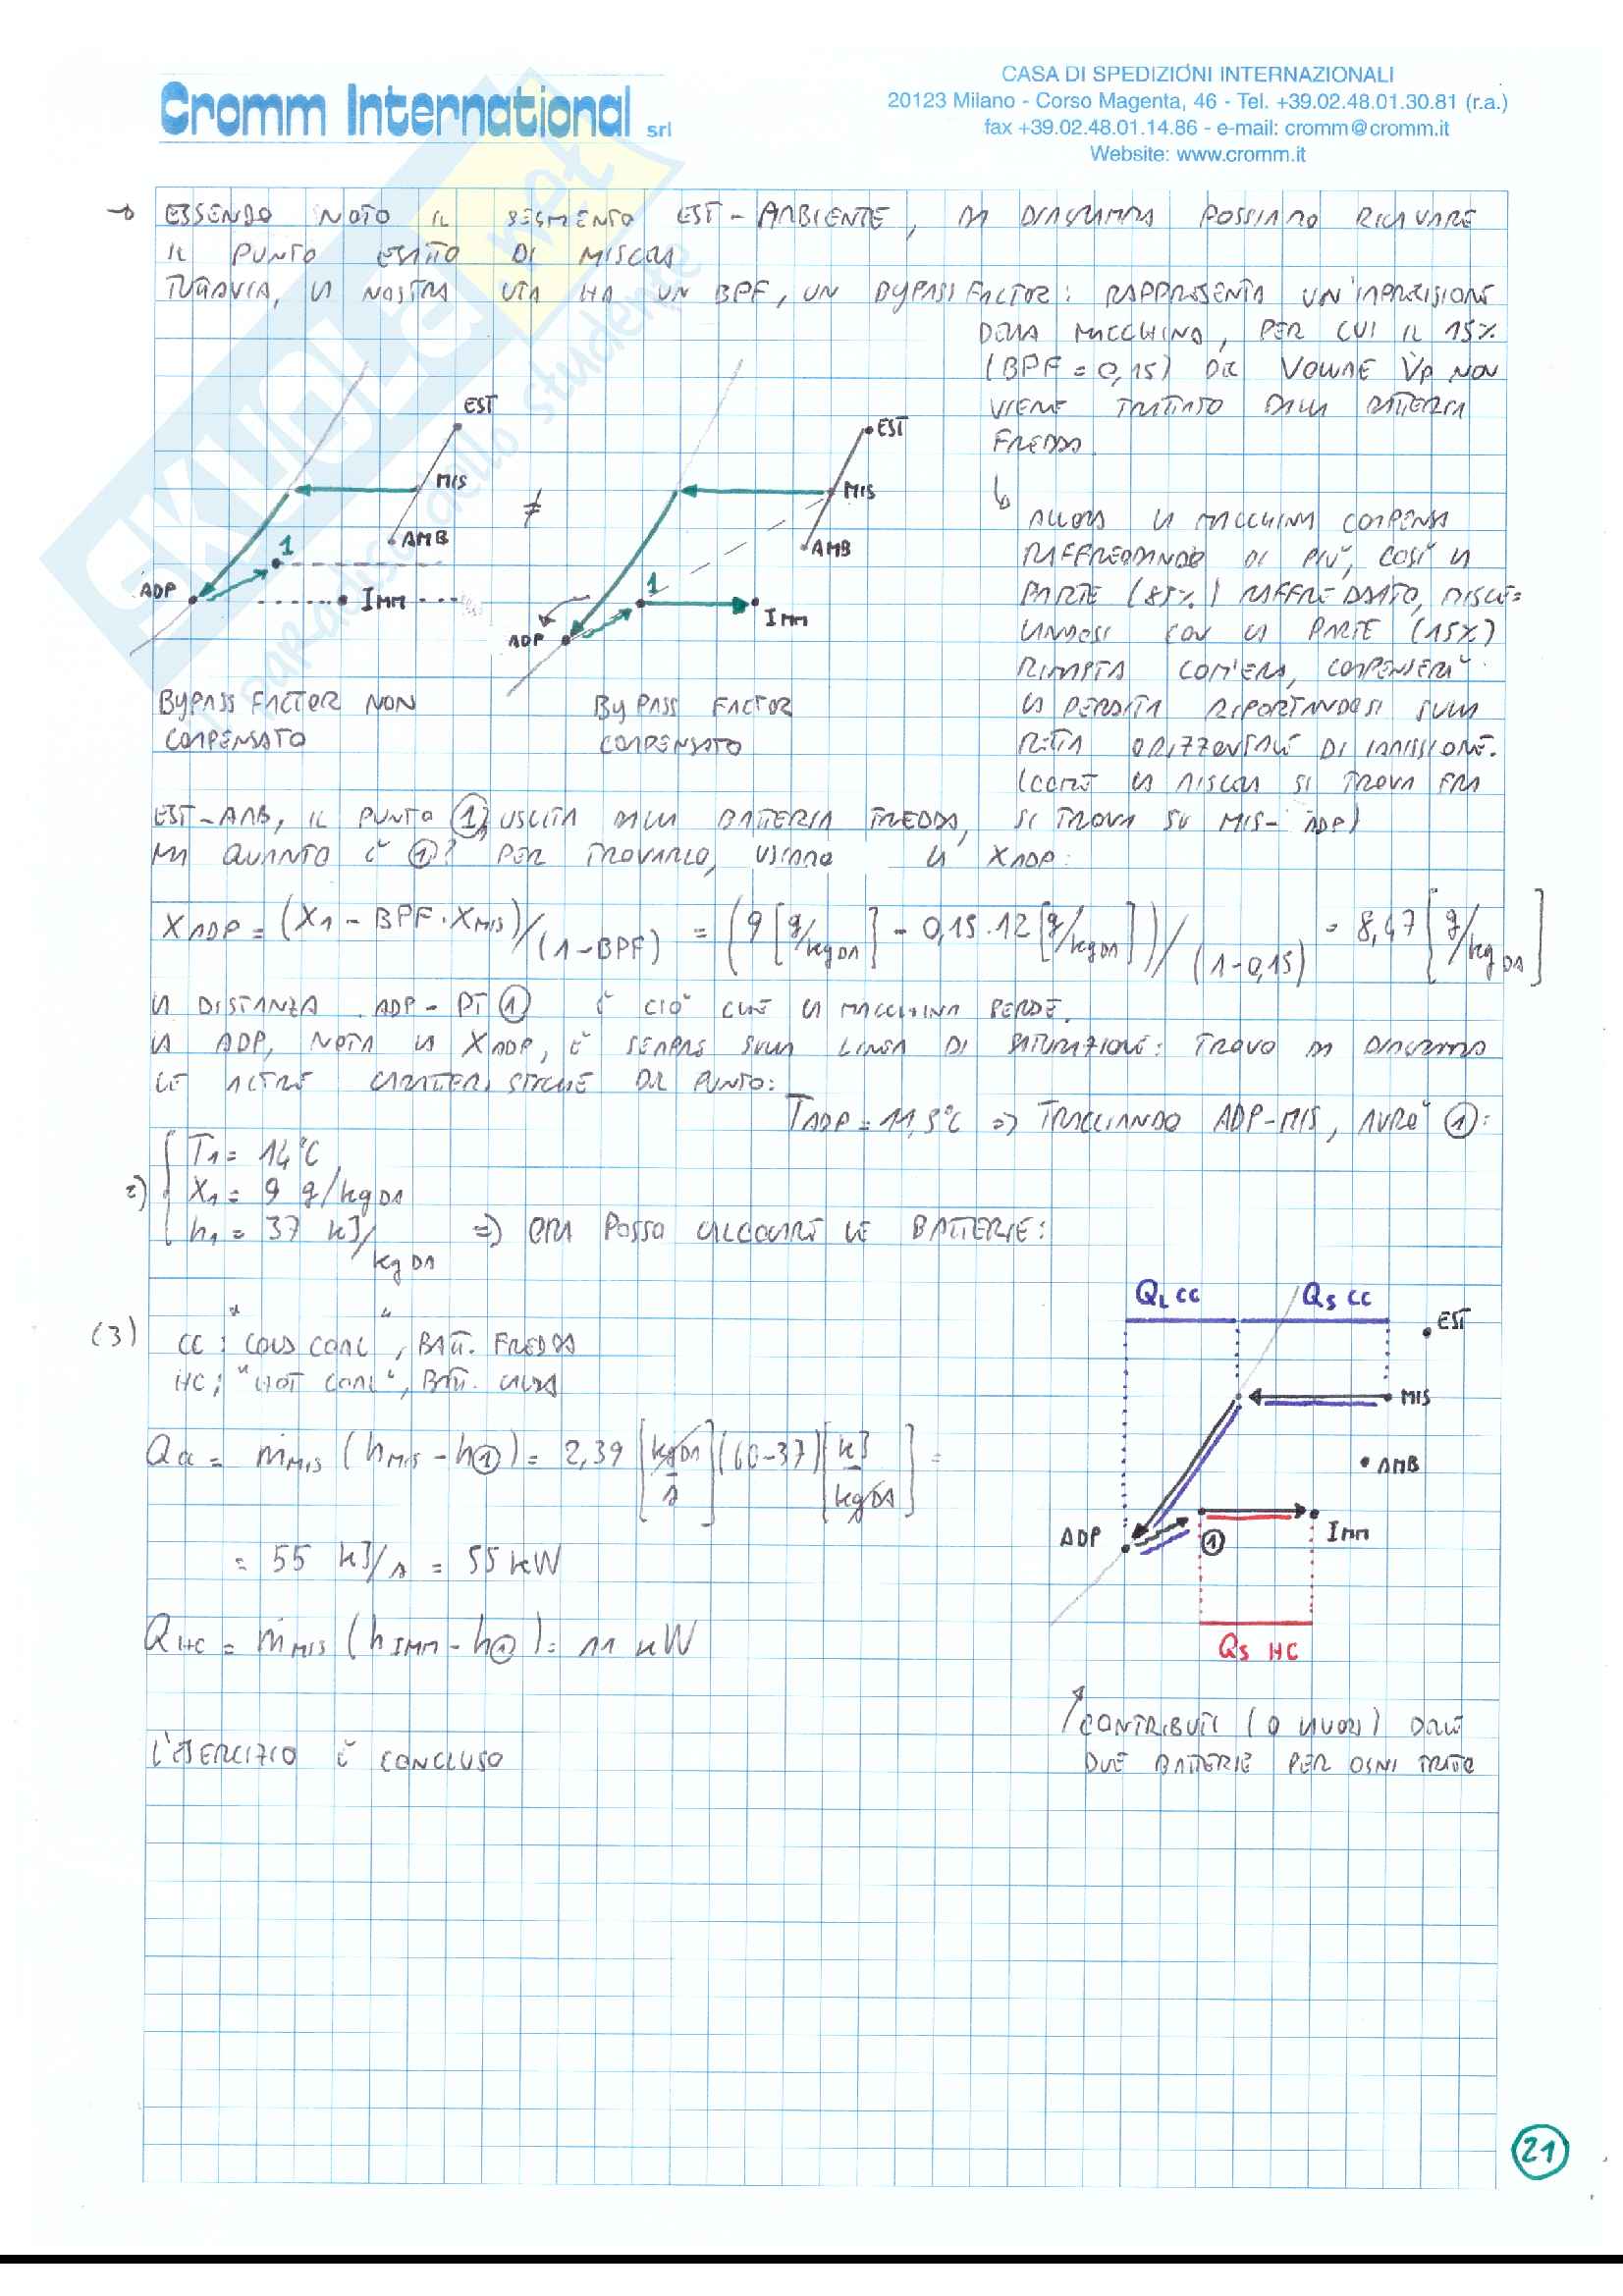 Cromm International srl
CASA DI SPEDIZIONI INTERNAZIONALI
20123 Milano - Corso Magenta, 46 - Tel. +39.02.48.01.30.81 (r.a.)
fax +39.02.48.01.14.86 - e-mail: cromm@cromm.it
Website: www.cromm.it
→ ESSENDO NOTO IL SEGMENTO EST-AMBIENTE, DA DIAGRAMMA POSSIAMO RICAVARE
IL PUNTO ESATTO DI MISCELA
TUTTAVIA, LA NOSTRA UTA HA UN BPF, UN BYPASS FACTOR: RAPPRESENTA UN'IMPRECISIONE
DELLA MACCHINA, PER CUI IL 15%
(BPF = 0,15) DEL VOLUME V̇P NON
VIENE TRATTATO DALLA BATTERIA
FREDDA
↳ ALLORA LA MACCHINA COMPENSA
RAFFREDDANDO DI PIÙ, COSÌ LA
PARTE (85%) RAFFREDDATO, MISCE=
LANDOSI CON LA PARTE (15%)
RIMASTA COM'ERA, COMPENSERÀ
LA PERDITA RIPORTANDOSI SULLA
RETTA ORIZZONTALE DI IMMISSIONE.
(COME LA MISCELA SI TROVA FRA
EST
MIS
AMB
1
ADP
IMM
BYPASS FACTOR NON
COMPENSATO
≠
EST
MIS
AMB
1
IMM
ADP
BYPASS FACTOR
COMPENSATO
EST-AMB, IL PUNTO ①, USCITA DALLA BATTERIA FREDDA, SI TROVA SU MIS-ADP)
MA QUANTO È ①? PER TROVARLO, USIAMO LA XADP:
XADP = (X1 - BPF · XMIS)/(1-BPF) = (9 [g/kgDA] - 0,15 · 12 [g/kgDA])/(1-0,15) = 8,47 [g/kgDA]
LA DISTANZA ADP-PT ① È CIÒ CHE LA MACCHINA PERDE.
LA ADP, NOTA LA XADP, È SEMPRE SULLA LINEA DI SATURAZIONE: TROVO DA DIAGRAMMA
LE ALTRE CARATTERISTICHE DEL PUNTO:
TADP = 11,5°C ⇒ TRACCIANDO ADP-MIS, AVRÒ ①:
2) { T1 = 14°C
X1 = 9 g/kgDA
h1 = 37 kJ/kgDA ⇒ ORA POSSO CALCOLARE LE BATTERIE:
(3) CC: "COLD COIL", BATT. FREDDA
HC: "HOT COIL", BATT. CALDA
Qcc = ṁMIS (hMIS - h①) = 2,39 [kgDA/s] (60-37) [kJ/kgDA] =
= 55 kJ/s = 55 kW
QHC = ṁMIS (hIMM - h①) = 11 kW
L'ESERCIZIO È CONCLUSO
QL CC
QS CC
EST
MIS
AMB
ADP
①
IMM
QS HC
↗ CONTRIBUTI (O LAVORI) DELLE
DUE BATTERIE PER OGNI TRATTO
21